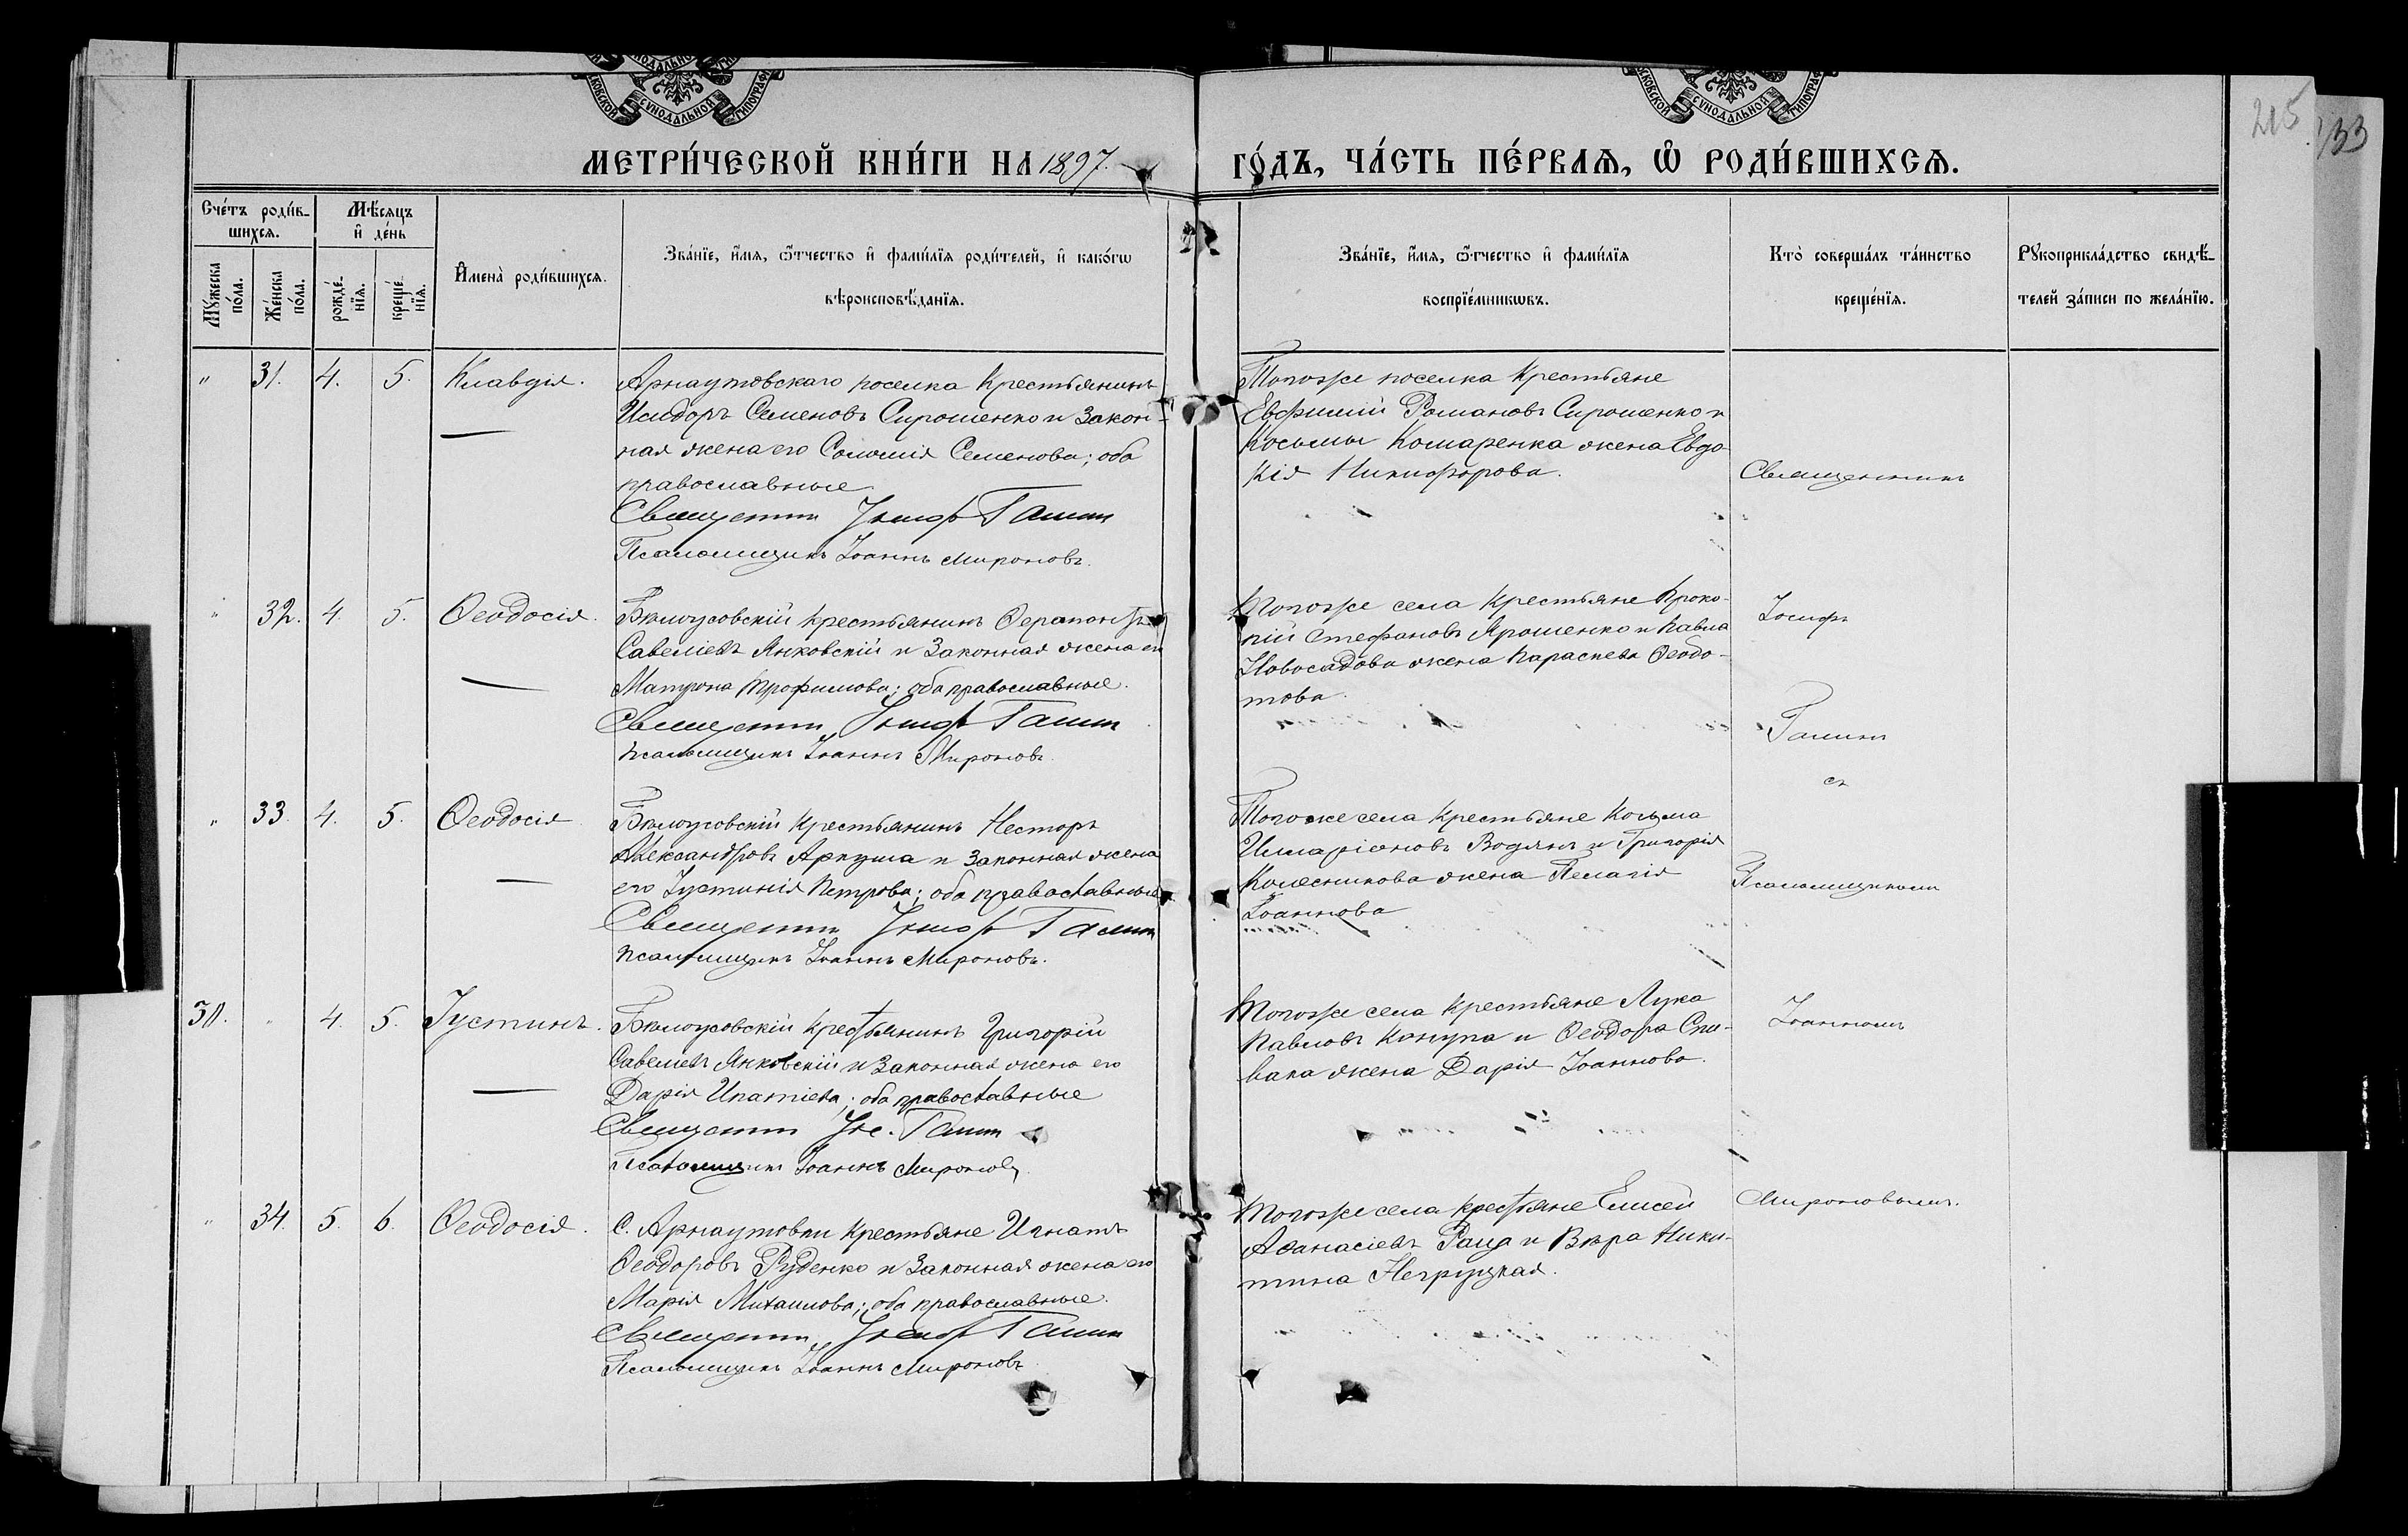 МЕТРИ́ЧЕСКОЙ КНИ́ГИ НА 1897.
ГО́ДЪ, ЧА́СТЬ ПЕ́РВАѦ, Ѡ РОДИ́ВШИХСѦ.
215
133
Сче́тъ роди́в-
шихсѧ.
Мѣ́сѧцъ
и де́нь
Мꙋ́жеска
по́ла.
Же́нска
по́ла.
рожде́-
нїѧ.
креще́-
нїѧ.
Имена̀ роди́вшихсѧ.
Зва́нїе, и́мѧ, ѻ́тчество и фами́лїѧ роди́телей, и како́гѡ
вѣроисповѣ́данїѧ.
Зва́нїе, и́мѧ, ѻ́тчество и фами́лїѧ
воспрїе́мникѡвъ.
Кто̀ соверша́лъ та́инство
креще́нїѧ.
Рꙋкоприкла́дство свидѣ́-
телей за́писи по жела́нїю.
" 31. 4. 5. Клавдія.
Арнаутовскаго поселка Крестьянинъ
Исидоръ Семеновъ Сирошенко и Закон-
ная жена его Соломія Семенова; оба
православные
Священникъ Іосифъ Галинъ
Псаломщикъ Іоаннъ Мироновъ.
Тогоже поселка Крестьяне
Евфимій Романовъ Сирошенко и
Косьмы Комаренка жена Евдо-
кія Никифорова.
Священникъ
" 32. 4. 5. Ѳеодосія.
Бѣлоусовскій крестьянинъ Ѳерапонтъ
Савеліевъ Янковскій и Законная жена его
Матрона Трофимова; оба православные.
Священникъ Іосифъ Галинъ
Псаломщикъ Іоаннъ Мироновъ.
Тогоже села Крестьяне Проко-
пій Стефановъ Ярошенко и Павла
Новосадова жена Параскева Ѳеодо-
това.
Іосифъ
Галинъ
съ
" 33. 4. 5. Ѳеодосія
Бѣлоусовскій Крестьянинъ Несторъ
Александровъ Аркуша и Законная жена
его Іустинія Петрова; оба православные
Священникъ Іосифъ Галинъ
Псаломщикъ Іоаннъ Мироновъ.
Тогоже села Крестьяне Косьма
Илларіоновъ Водянъ и Григорія
Колесникова жена Пелагія
Іоаннова
Псаломщикомъ
30. " 4. 5. Іустинъ.
Бѣлоусовскій Крестьянинъ Григорій
Савеліевъ Янковскій и Законная жена его
Дарія Ипатіева; оба православные
Священникъ Іос. Галинъ
Псаломщикъ Іоаннъ Мироновъ
Тогоже села Крестьяне Лука
Павловъ Конупа и Ѳеодора Спи-
вака жена Дарія Іоаннова.
Іоанномъ
" 34. 5. 6. Ѳеодосія.
С. Арнаутовки Крестьяне Игнатъ
Ѳеодоровъ Руденко и Законная жена его
Марія Михаилова; оба православные.
Священникъ Іосифъ Галинъ
Псаломщикъ Іоаннъ Мироновъ
Тогоже села крестьяне Елисей
Аѳанасіевъ Раца и Вѣра Ники-
тина Негруцкая.
Мироновымъ.